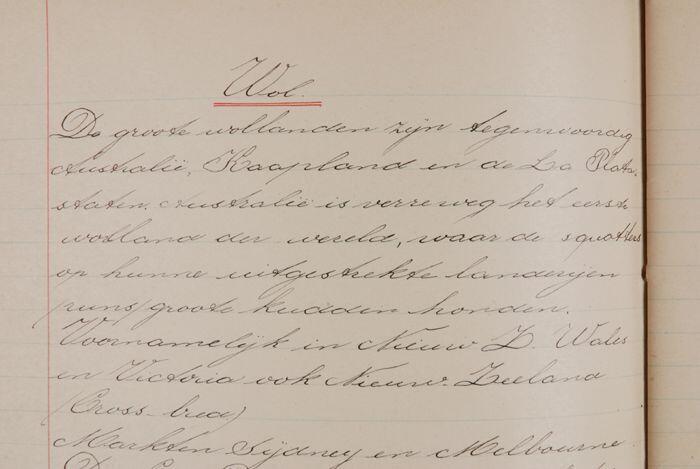 Wol.
De groote wollanden zijn tegenwoordig
Australië, Kaapland en de La Plata-
staten. Australië is verreweg het eerste
wolland der wereld, waar de squatters
op hunne uitgestrekte landerijen
(runs) groote kudden honden.
Voornamelijk in Nieuw Z. Wales
en Victoria ook Nieuw-Zeeland
(Cross-bred)
Markten Sydney en Melbourne
De